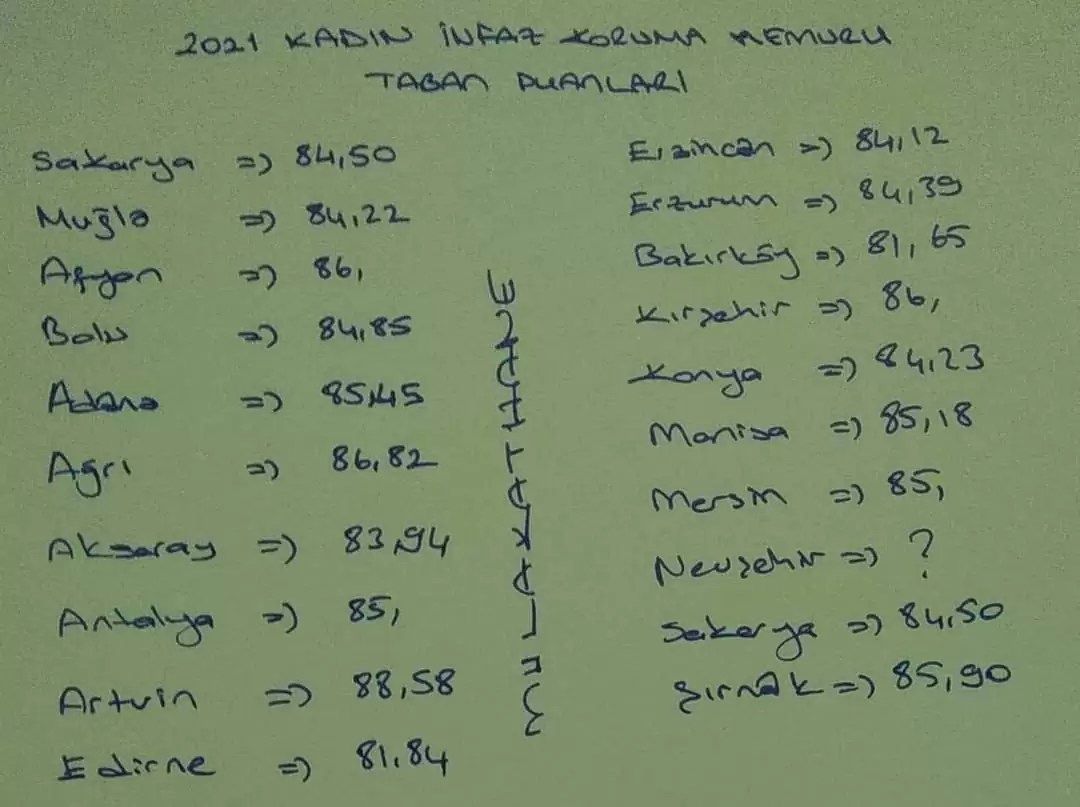 2021 KADIN İNFAZ KORUMA MEMURU
TABAN PUANLARI
Sakarya => 84,50
Muğla => 84,22
Afyon => 86,
Bolu => 84,85
Adana => 85,45
Agrı => 86,82
Aksaray => 83,94
Antalya => 85,
Artvin => 88,58
Edirne => 81.84
Erzincan => 84,12
Erzurum => 84,39
Bakırköy => 81,65
Kırşehir => 86,
Konya => 84,23
Manisa => 85,18
Mersin => 85,
Nevşehir => ?
Sakarya => 84,50
Şırnak => 85,90